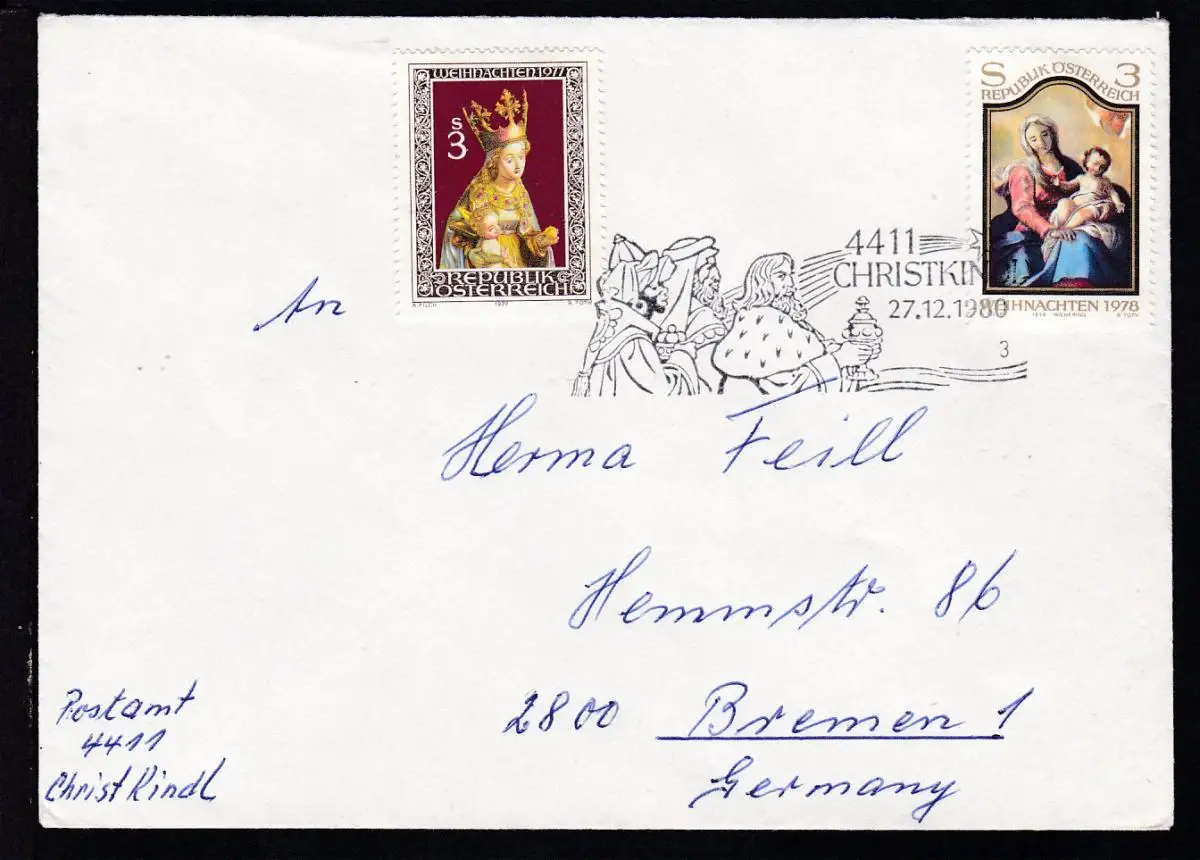 WEIHNACHTEN 1977
S
3
REPUBLIK
ÖSTERREICH
A. PILCH 1977 R. TOTH
S 3
REPUBLIK ÖSTERREICH
WEIHNACHTEN 1978
1978 R. TOTH
4411
CHRISTKIN
27.12.1980
3
An
Herma Feill
Hemmstr. 86
2800 Bremen 1
Germany
Postamt
4411
Christkindl